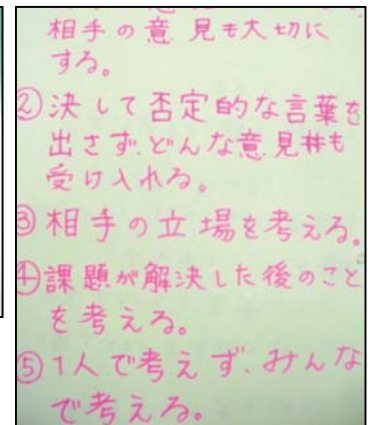 相手の意見も大切に
する。
②決して否定的な言葉を
出さず、どんな意見も
受け入れる。
③相手の立場を考える。
④課題が解決した後のこと
を考える。
⑤1人で考えず、みんな
で考える。